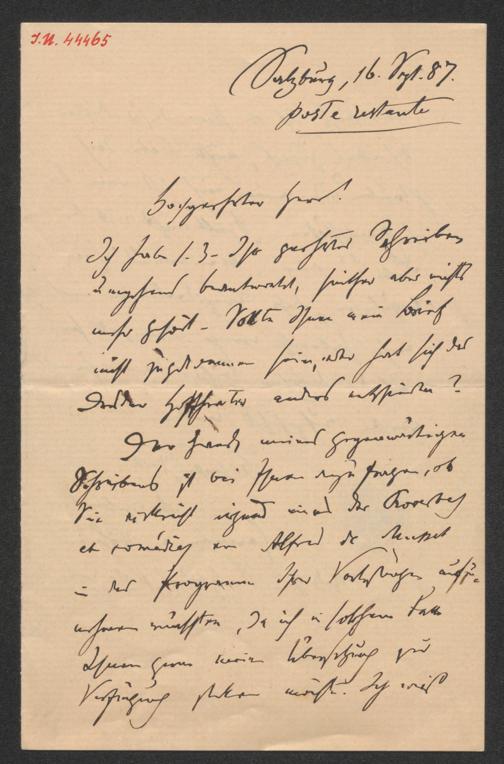 J.N. 44465
Salzburg, 16. Sept. 87.
poste restante
Hochgeehrter Herr!
Ich habe s. Z. Ihr geehrtes Schreiben
umgehend beantwortet, seither aber nichts
mehr gehört. Sollte Ihnen mein Brief
nicht zugekommen sein, oder hat sich das
Dresdner Hoftheater anders entschieden?
Der Zweck meines gegenwärtigen
Schreibens ist bei Ihnen anzufragen, ob
Sie vielleicht irgend eines der Proverbes
et comédies von Alfred de Musset
in das Programm Ihrer Vorlesungen aufzu-
nehmen wünschten, da ich in solchem Falle
Ihnen gern meine Übersetzung zur
Verfügung stellen möchte. Ich weiß